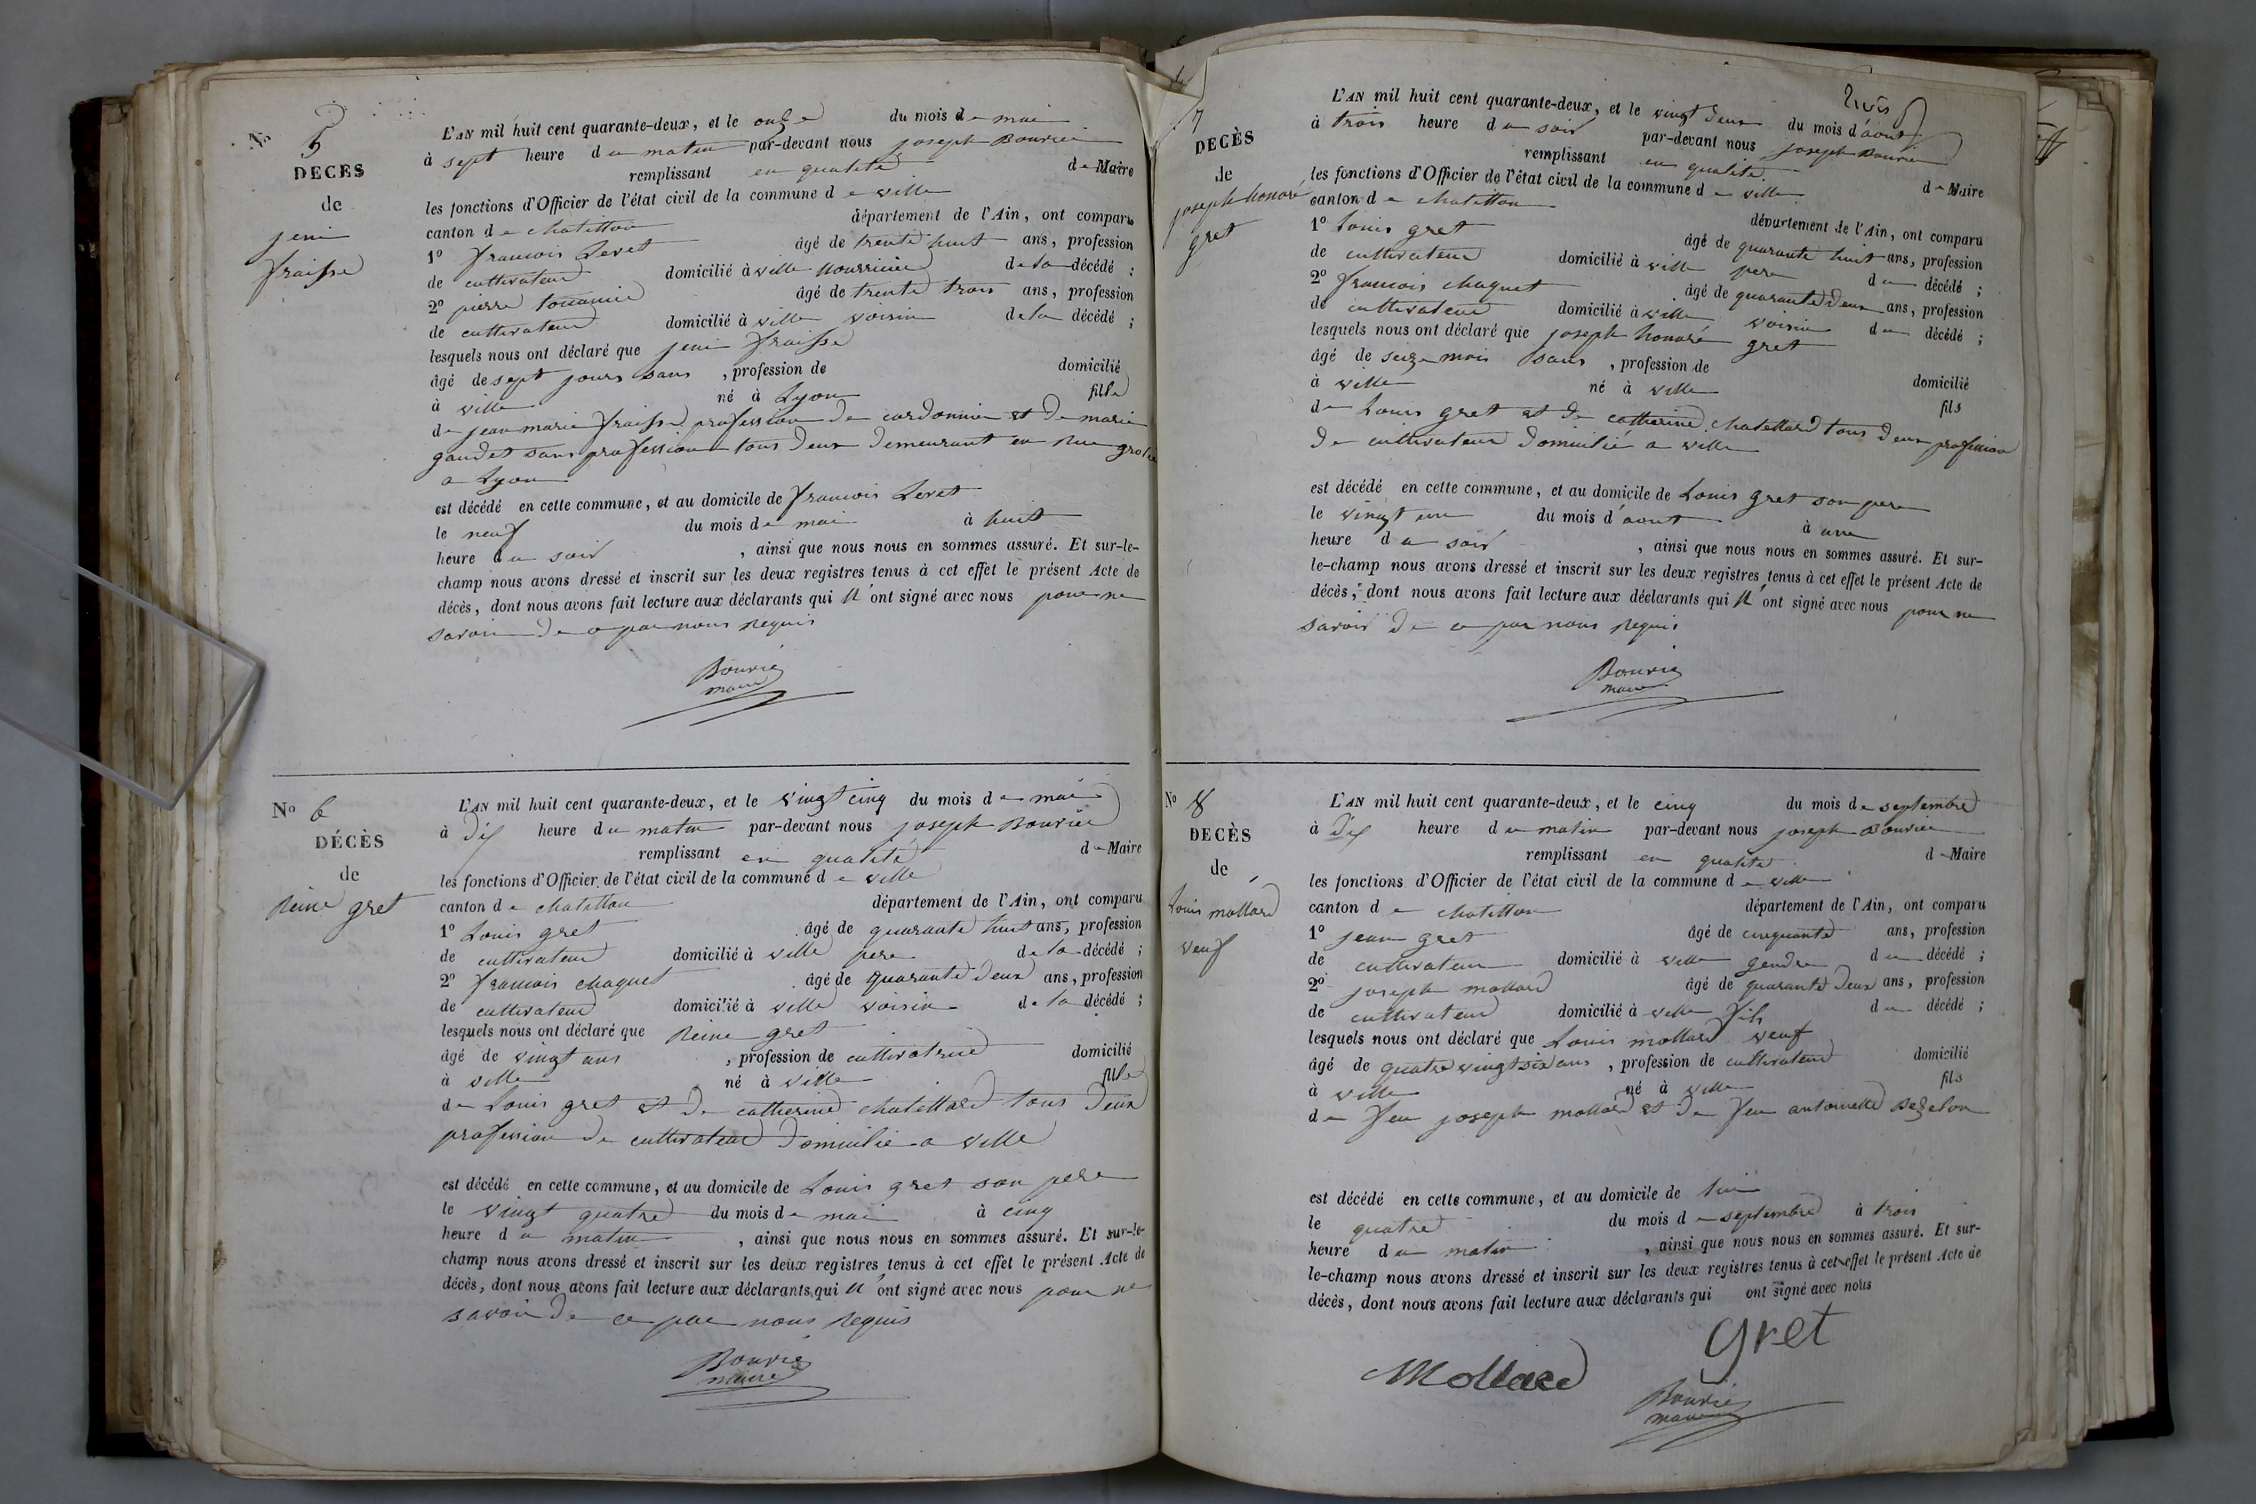 No 5
DECES
de
jeni
fraisse
L'AN mil huit cent quarante-deux, et le onze du mois de mai
à sept heure du matin par-devant nous joseph Bouvier
remplissant en qualité de Maire
les fonctions d'Officier de l'état civil de la commune de ville
canton de chatillon département de l'Ain, ont comparu
1o francois Levet âgé de trente huit ans, profession
de cultivateur domicilié à ville nourricier de la décédé ;
2o pierre âgé de trente trois ans, profession
de cultivateur domicilié à ville voisin de la décédé ;
lesquels nous ont déclaré que jeni fraisse
âgé de sept jours sans , profession de domicilié
à ville né à Lyon fille
de jean marie fraisse profession de cordonnier et de marie
gaudet sans profession tous deux demeurant en rue
a Lyon
est décédé en cette commune, et au domicile de francois Levet
le neuf du mois de mai à huit
heure du soir , ainsi que nous nous en sommes assuré. Et sur-le-
champ nous avons dressé et inscrit sur les deux registres tenus à cet effet le présent Acte de
décès, dont nous avons fait lecture aux déclarants qui n'ont signé avec nous pour ne
savoir de ce par nous requis
Bouvier
maire
No 6
DÉCÈS
de
Reine gret
L'AN mil huit cent quarante-deux, et le vingt cinq du mois de mai
à dix heure du matin par-devant nous joseph Bouvier
remplissant en qualité de Maire
les fonctions d'Officier de l'état civil de la commune de ville
canton de chatillon département de l'Ain, ont comparu
1o Louis gret âgé de quarante huit ans, profession
de cultivateur domicilié à ville pere de la décédé ;
2o francois chaquet âgé de quarante deux ans, profession
de cultivateur domicilié à ville voisin de la décédé ;
lesquels nous ont déclaré que Reine gret
âgé de vingt ans , profession de cultivatrice domicilié
à ville né à ville fille
de Louis gret et de catherine chatillard tous deux
profession de cultivateur domicilié a ville
est décédé en cette commune, et au domicile de Louis gret son pere
le vingt quatre du mois de mai à cinq
heure du matin , ainsi que nous nous en sommes assuré. Et sur-le-
champ nous avons dressé et inscrit sur les deux registres tenus à cet effet le présent Acte de
décès, dont nous avons fait lecture aux déclarants qui n'ont signé avec nous pour ne
savoir de ce par nous requis
Bouvier
maire
7
DECÈS
de
joseph honoré
gret
L'AN mil huit cent quarante-deux, et le vingt deux du mois d'aout
à trois heure du soir par-devant nous joseph Bouvier
remplissant en qualité de Maire
les fonctions d'Officier de l'état civil de la commune de ville
canton de chatillon département de l'Ain, ont comparu
1o Louis gret âgé de quarante huit ans, profession
de cultivateur domicilié à ville pere du décédé ;
2o francois chaquet âgé de quarante deux ans, profession
de cultivateur domicilié à ville voisin du décédé ;
lesquels nous ont déclaré que joseph honoré gret
âgé de seize mois sans , profession de domicilié
à ville né à ville fils
de Louis gret et de catherine chatellard tous deux profession
de cultivateur domicilié a ville
est décédé en cette commune, et au domicile de Louis gret son pere
le vingt un du mois d'aout à une
heure du soir , ainsi que nous nous en sommes assuré. Et sur-
le-champ nous avons dressé et inscrit sur les deux registres tenus à cet effet le présent Acte de
décès, dont nous avons fait lecture aux déclarants qui n'ont signé avec nous pour ne
savoir de ce par nous requis
Bouvier
maire
No 8
DECÈS
de
Louis mollard
veuf
L'AN mil huit cent quarante-deux, et le cinq du mois de septembre
à dix heure du matin par-devant nous joseph Bouvier
remplissant en qualité de Maire
les fonctions d'Officier de l'état civil de la commune de ville
canton de chatillon département de l'Ain, ont comparu
1o jean gret âgé de cinquante ans, profession
de cultivateur domicilié à ville gendre du décédé ;
2o joseph mollard âgé de quarante deux ans, profession
de cultivateur domicilié à ville fils du décédé ;
lesquels nous ont déclaré que Louis mollard veuf
âgé de quatre vingt six ans , profession de cultivateur domicilié
à ville né à ville fils
de feu joseph mollard et de feu antoinette
est décédé en cette commune, et au domicile de lui
le quatre du mois de septembre à trois
heure du matin , ainsi que nous nous en sommes assuré. Et sur-
le-champ nous avons dressé et inscrit sur les deux registres tenus à cet effet le présent Acte de
décès, dont nous avons fait lecture aux déclarants qui ont signé avec nous
gret
Mollard
Bouvier
maire